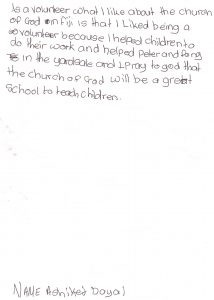 Is a volunteer what I like about the church
of God in Fiji is that I Liked being a
volunteer because I helped children to
do their work and helped Peter and fong
in the yardsale and I pray to god that
the church of God will be a great
school to teach children.
NAME Ashikesh Dayal